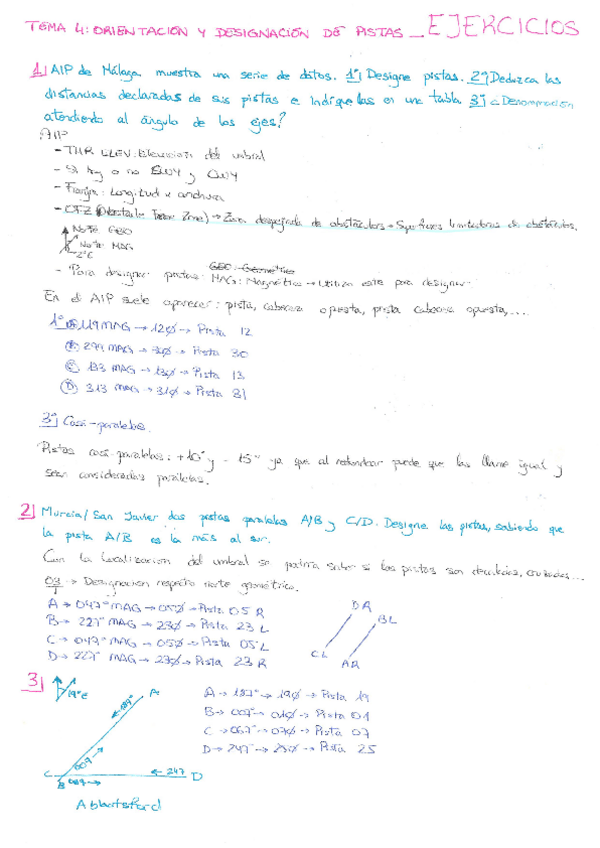 TEMA 4: ORIENTACIÓN Y DESIGNACIÓN DE PISTAS_ EJERCICIOS
1) AIP de Málaga muestra una serie de datos. 1º) Designe pistas. 2º) Deduzca las
distancias declaradas de sus pistas e indíquelas en una tabla 3º) ¿Denominación
atendiendo al ángulo de los ejes?
AIP
- THR ELEV: Elevación del umbral
- Si hay o no SWY y CWY
- Franja: Longitud x anchura
- OFZ (Obstacle Free Zone) → Zona despejada de obstáculos → Superficies limitadoras de obstáculos.
Norte GEO
Norte MAG
2°E
GEO: Geométrico
- Para designar pistas: MAG: Magnético → Utilizar este para designar.
En el AIP suele aparecer: pista, cabecera opuesta, pista cabecera opuesta, ...
1º A 119 MAG → 120 → Pista 12
B 299 MAG → 300 → Pista 30
C 133 MAG → 130 → Pista 13
D 313 MAG → 310 → Pista 31
3º) Casi-paralelas.
Pistas casi-paralelas: +10° y -15° ya que al redondear puede que las llame igual y
sean consideradas paralelas.
2) Murcia/San Javier dos pistas paralelas A/B y C/D. Designe las pistas, sabiendo que
la pista A/B es la más al sur.
Con la localización del umbral se podría saber si las pistas son decaladas, cruzadas...
03/T → Designación respecto norte geométrico.
A → 047° MAG → 050 → Pista 05 R
B → 227° MAG → 230 → Pista 23 L
C → 047° MAG → 050 → Pista 05 L
D → 227° MAG → 230 → Pista 23 R
DR
BL
CL
AR
3)
19°E
A
187°
007
C
B
067→
← 247
D
A → 187° → 190 → Pista 19
B → 007 → 010 → Pista 01
C → 067° → 070 → Pista 07
D → 247° → 250 → Pista 25
Abbotsford